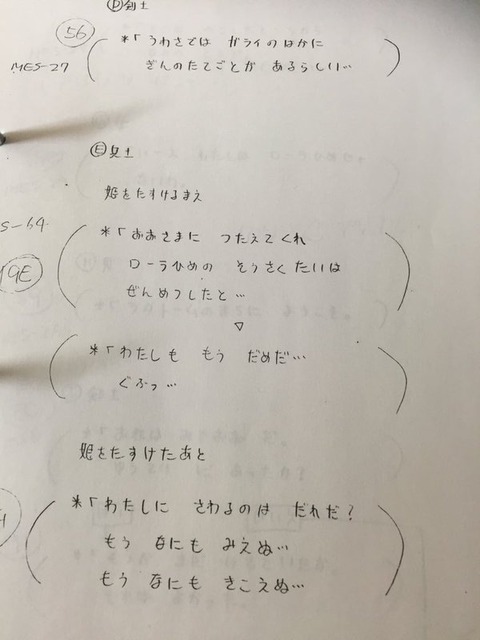 Ⓓ剣士
56
MES-27
*「うわさでは ガライのはかに
ぎんのたてごとが あるらしい…
Ⓔ兵士
姫をたすけるまえ
S-64
9E
*「おおさまに つたえてくれ
ローラひめの そうさくたいは
ぜんめつしたと…
▽
*「わたしも もう だめだ…
ぐふっ…
姫をたすけたあと
*「わたしに さわるのは だれだ?
もう なにも みえぬ…
もう なにも きこえぬ…